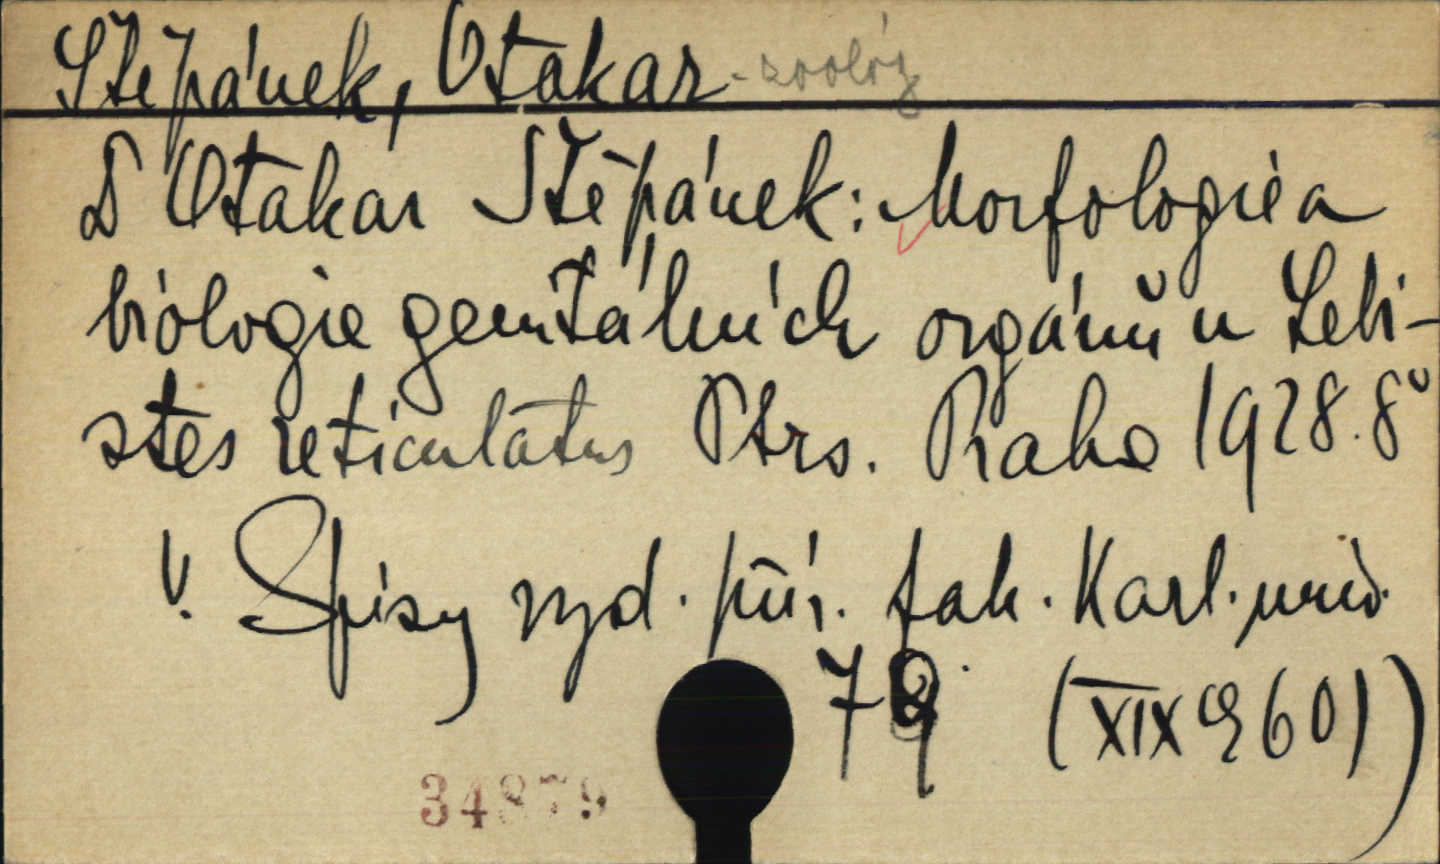 Štěpánek, Otakar - zoológ
Dr Otakar Štěpánek: Morfologie a
biologie genitálních orgánů u Lebi-
stes reticulatus Ptrs. Praha 1928. 8°
v. Spisy vyd. přír. fak. Karl. univ.
79. (XIX C 601)
34879